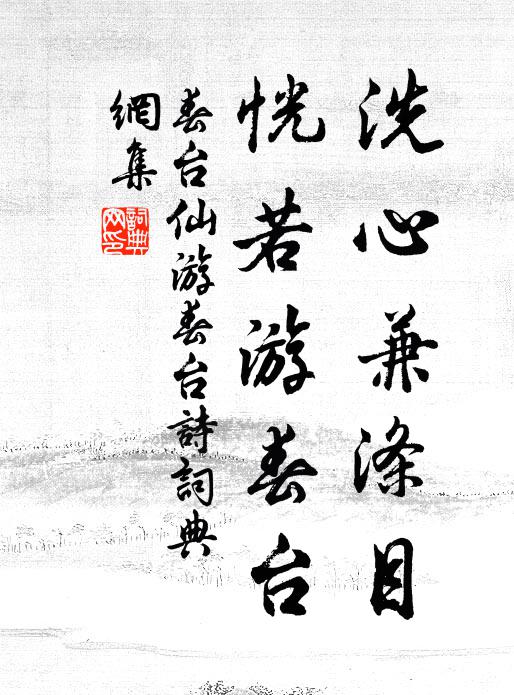 洗心兼涤目
恍若游春台
春台仙游春台詩詞典
網集
詞典
网印